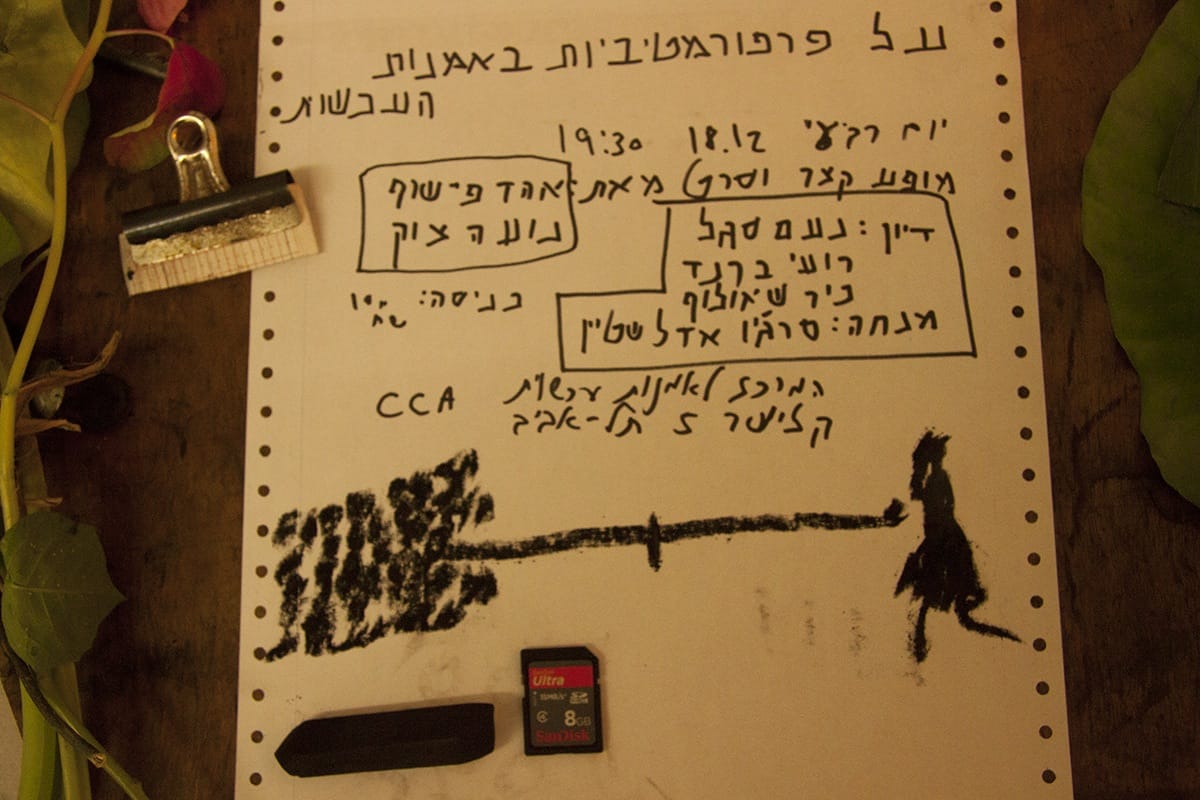 על פרפורמטיביות באמנות
העכשוית
יום רביעי 18.12 19:30
מופע קצר (וסרט) מאת: אהד פישוף
נועה צוק
דיון: נעם סגל
רועי ברנד
ניר שאולוף
מנחה: סרג'ו אדלשטיין
כניסה: 10 ש"ח
המרכז לאמנות עכשוית CCA
קלישר 5 תל-אביב
SanDisk
Ultra
8GB
SanDisk